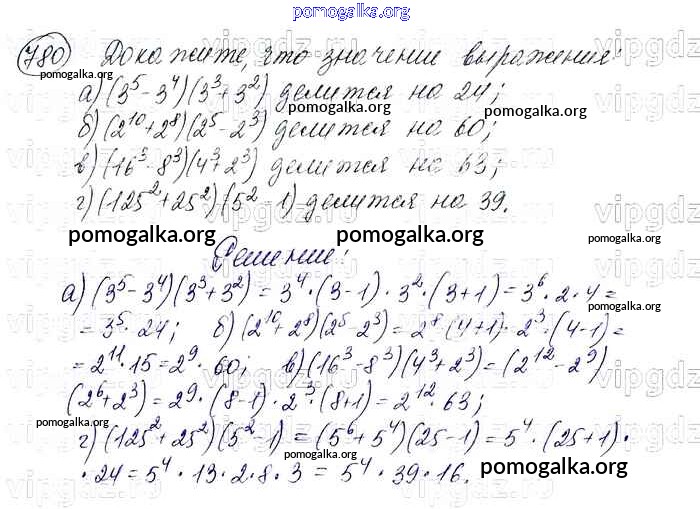 pomogalka.org
780 Докажите, что значение выражения:
pomogalka.org
а) (3⁵ - 3⁴)(3³ + 3²) делится на 24;
pomogalka.org pomogalka.org
б) (2¹⁰ + 2⁸)(2⁵ - 2³) делится на 60;
pomogalka.org
в) (16³ - 8³)(4³ + 2³) делится на 63;
г) (125² + 25²)(5² - 1) делится на 39.
pomogalka.org pomogalka.org pomogalka.org
Решение:
pomogalka.org
а) (3⁵ - 3⁴)(3³ + 3²) = 3⁴ · (3 - 1) · 3² · (3 + 1) = 3⁶ · 2 · 4 =
pomogalka.org
= 3⁵ · 24; б) (2¹⁰ + 2⁸)(2⁵ - 2³) = 2⁸ · (4 + 1) · 2³ · (4 - 1) =
= 2¹¹ · 15 = 2⁹ · 60; в) (16³ - 8³)(4³ + 2³) = (2¹² - 2⁹)
pomogalka.org
(2⁶ + 2³) = 2⁹ · (8 - 1) · 2³ · (8 + 1) = 2¹² · 63;
pomogalka.org pomogalka.org
г) (125² + 25²)(5² - 1) = (5⁶ + 5⁴)(25 - 1) = 5⁴ · (25 + 1) ·
· 24 = 5⁴ · 13 · 2 · 8 · 3 = 5⁴ · 39 · 16.
pomogalka.org